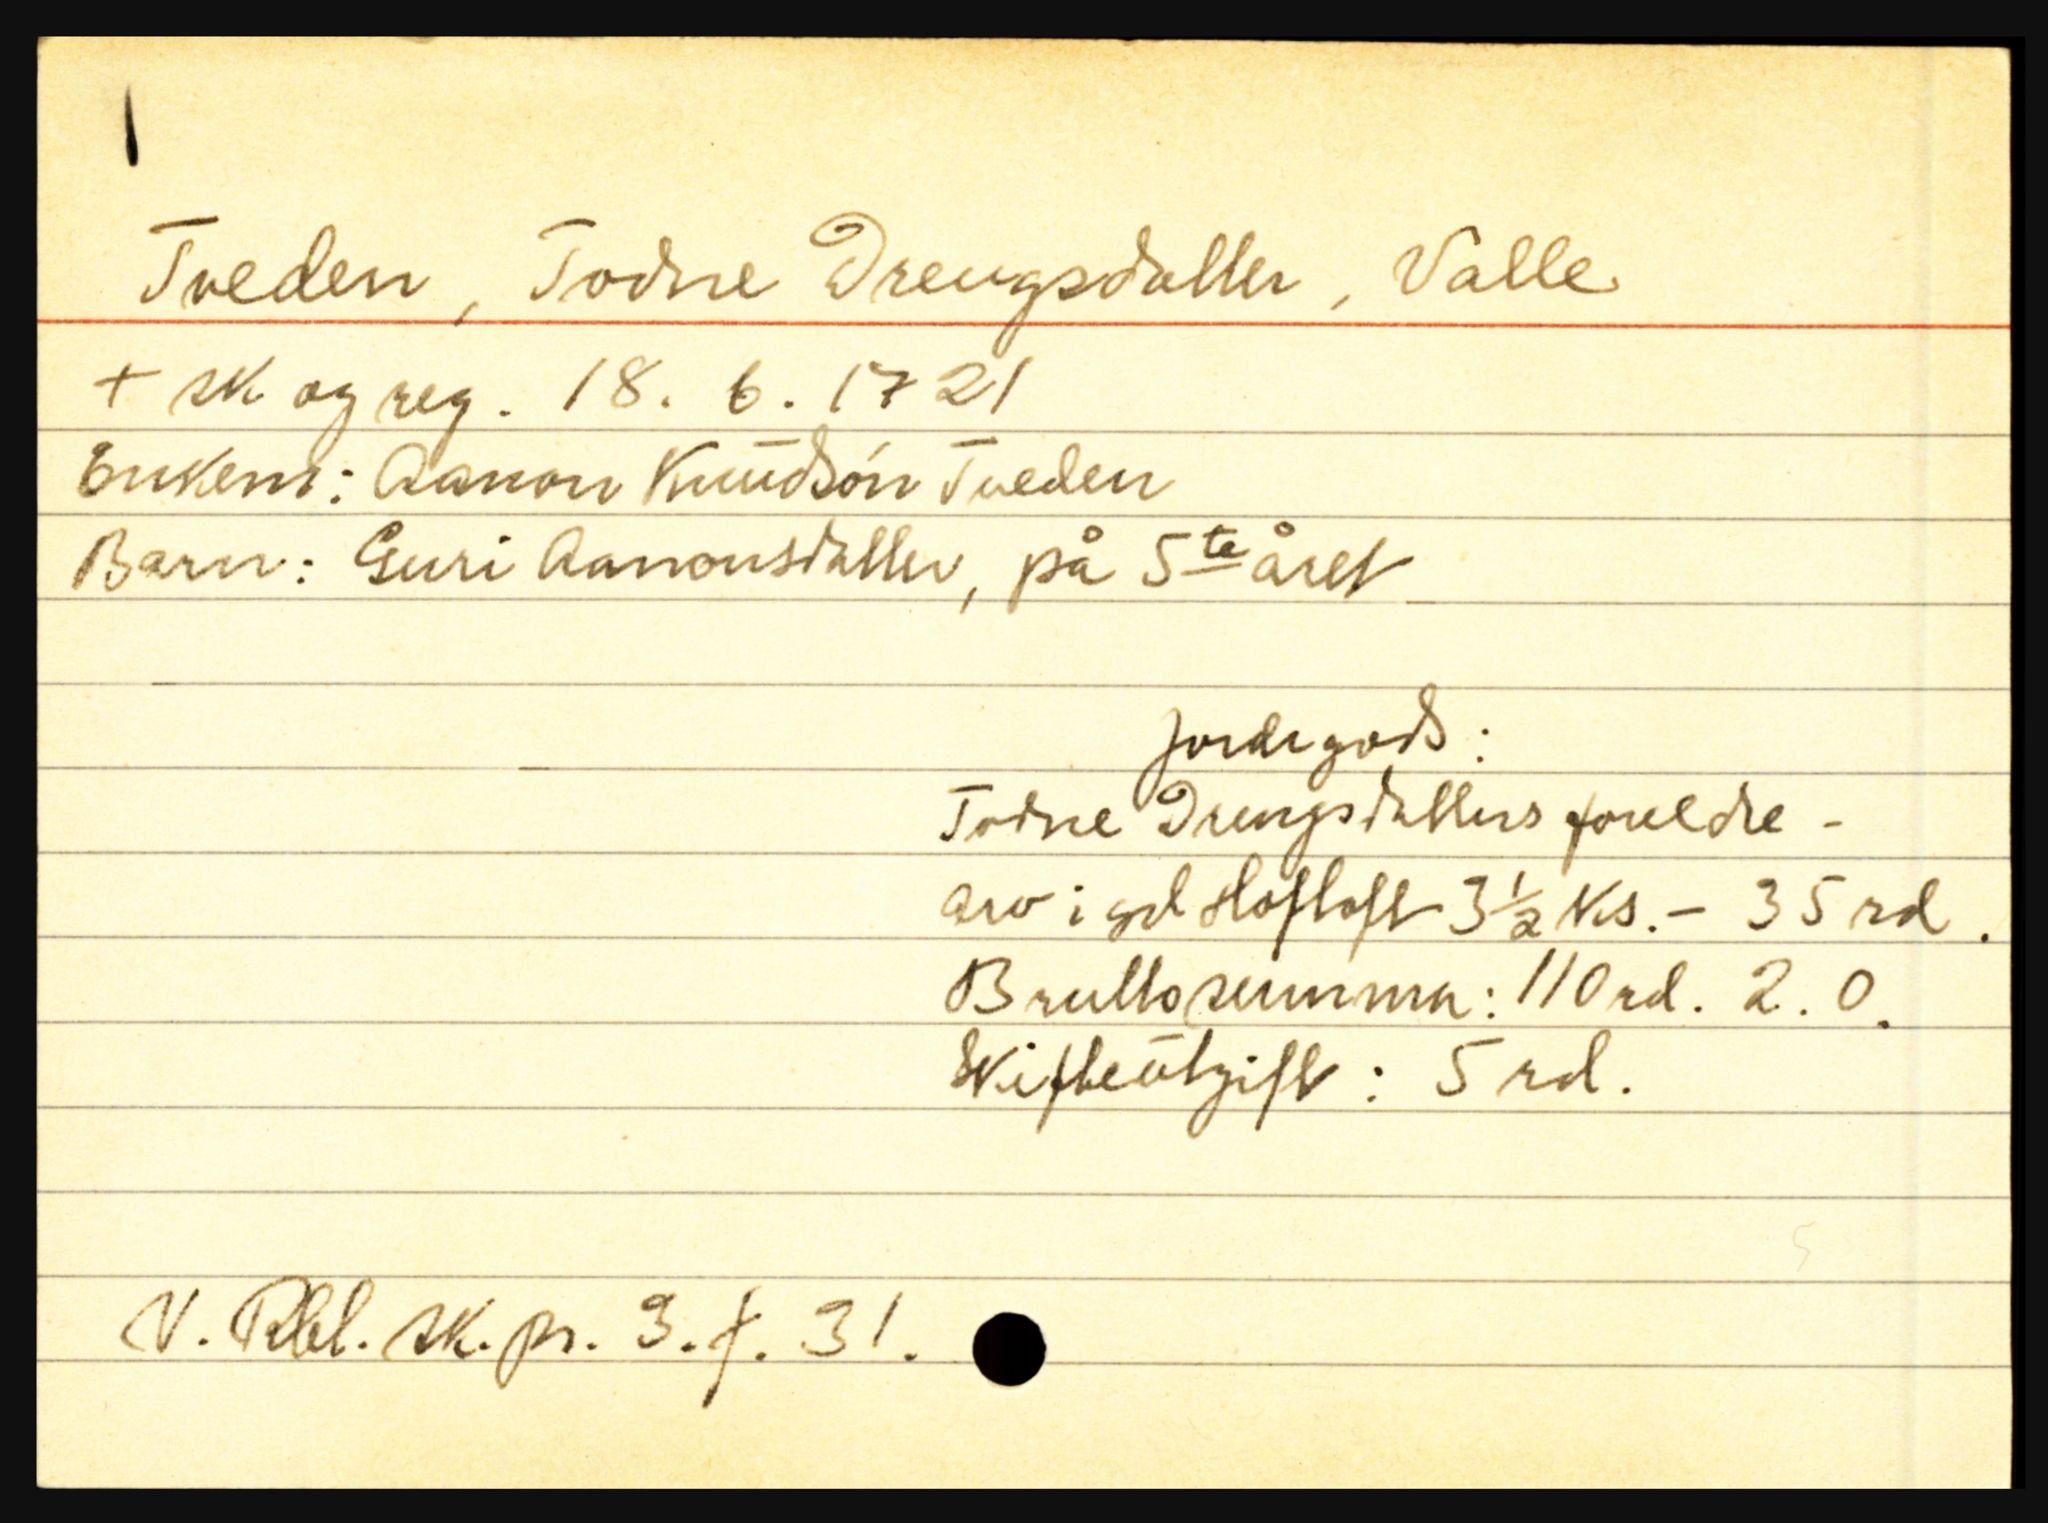 Tveden, Todne Drengsdatter, Valle
+ sk og reg. 18. 6. 1721
Enkem: Aanon Knudsøn Tveden
Barn: Guri Aanonsdatter, på 5te året
Jordegods:
Todne Drengsdatters foreldre-
arv i gd Hoftoft 3½ ks. - 35 rd.
Bruttosumma: 110 rd. 2. 0.
Skifteutgift: 5 rd.
V. Rbl. sk. pr. 3. f. 31.